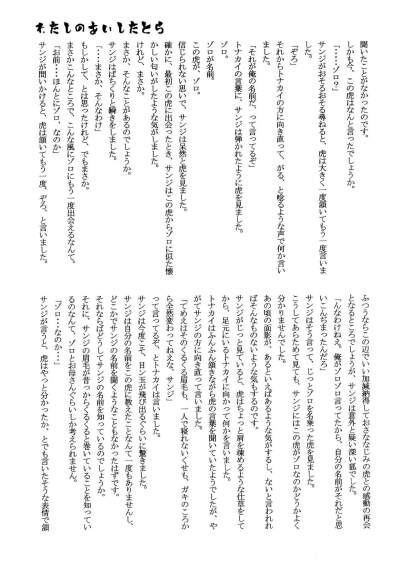 わたしのあいしたとら
聞いたことがなかったのです。
しかも今、この虎はなんと言ったでしょうか。
「・・・ゾロ？」
サンジがおそるおそる尋ねると、虎は大きく一度頷いてもう一度言いました。
「ぞろ」
それからトナカイの方に向き直って、がる、と唸るような声で何か言いました。
「それが俺の名前だ、って言ってるぞ」
トナカイの言葉に、サンジは弾かれたように虎を見ました。
ゾロ。
ゾロが名前。
この虎が、ゾロ。
信じられない思いで、サンジは呆然と虎を見ました。
確かに、最初この虎に出会ったとき、サンジはこの虎からゾロに似た懐かしい匂いがしたような気がしました。
けれど、まさか。
まさか、そんなことがあるのでしょうか。
サンジはぱちくりと瞬きをしました。
「・・・まさか、そんなわけ」
もしかして、とは思ったけれど、でもまさか。
まさかこんなところで、こんな風にゾロにもう一度出会えるなんて。
「お前・・・ほんとにゾロ、なのか」
サンジが問いかけると、虎は頷いてもう一度、ぞろ、と言いました。
ふつうならこの辺でいい加減納得しておさななじみの虎との感動の再会となるところでしょうが、サンジは意外と疑い深い狐でした。
「んなわけねえ。俺がゾロゾロ言ってたから、自分の名前がそれだと思いこんぢまったんだろ」
サンジはそう言って、じっとゾロを名乗った虎を見ました。
こうしてあらためて見ても、サンジにはこの虎がゾロなのかどうかよく分かりませんでした。
あの頃の面影が、あるといえばあるような気がするし、ないと言われればそんなものないような気もするのです。
サンジがじっと見ていると、虎はちょっと肩を竦めるような仕草をしてから、足元にいるトナカイに向かって何かを言いました。
トナカイはふんふん頷きながら虎の言葉を聞いていたようでしたが、やがてサンジの方に向き直って言いました。
「てめえはそのぐるぐる眉毛も、一人で寝れないくせも、ガキのころから全然変わってねえな、サンジ」
って言ってるぞ、とトナカイは言いました。
サンジは今度こそ、目ン玉が飛び出るぐらいに驚きました。
サンジは自分の名前をこの虎に教えたことなんて一度もありませんし、どこかでサンジの名前を聞くようなこともなかったはずです。
それならばどうしてサンジの名前を知っているのでしょうか。
それに、サンジの眉毛が昔っからぐるぐると巻いていることを知っているのなんて、ゾロとお母さんぐらいしか考えられません。
「ゾロ・・・なのか・・・」
サンジが言うと、虎はやっと分かったか、とでも言いたそうな表情で頷